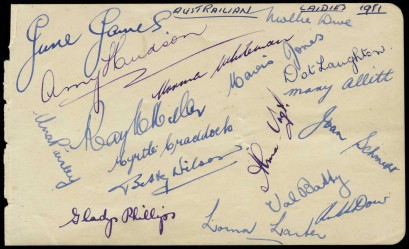 AUSTRALIAN LADIES 1951
Mollie Dive
June James
Amy Hudson
Norma Whiteman
Mavis Jones
Dot Laughton
Mary Allitt
Una Paisley
Kay McMillan
Myrtle Craddock
Betty Wilson
Alma Vogt
Joan Schmidt
Val Batty
Gladys Phillips
Lorna Larter
Ruth Dow